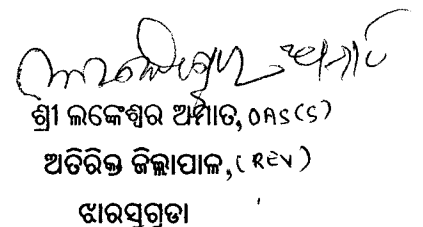 ଶ୍ରୀ ଲଙ୍କେଶ୍ୱର ଅମାତ, OAS(S)
ଅତିରିକ୍ତ ଜିଲ୍ଲାପାଳ, (REV)
ଝାରସୁଗୁଡା